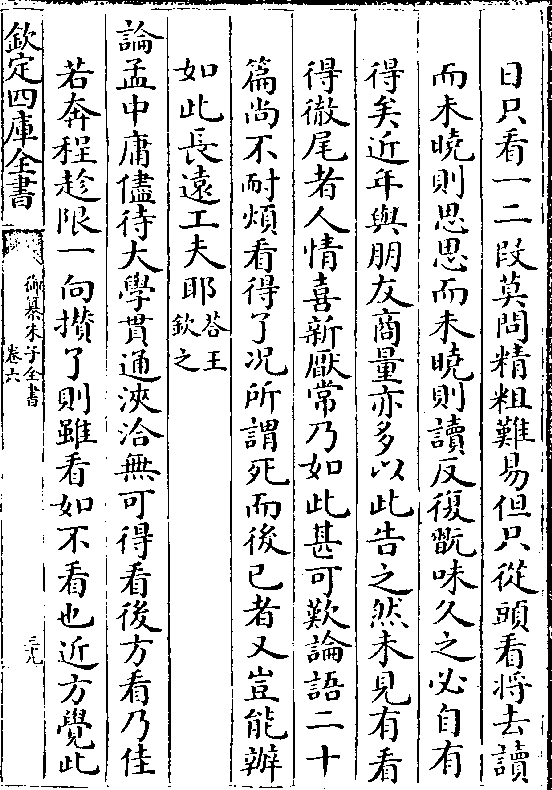 日只看一二段莫問精粗難易但只從頭看將去讀
而未曉則思思而未曉則讀反復翫味久之必自有
得矣近年與朋友商量亦多以此告之然未見有看
得徹尾者人情喜新厭常乃如此甚可歎論語二十
篇尚不耐煩看得了况所謂死而後已者又豈能辦
如此長遠工夫耶答王欽之
論孟中庸儘待大學貫通浹洽無可得看後方看乃佳
若奔程趁限一向攅了則雖看如不看也近方覺此
欽定四庫全書
御纂朱子全書
卷六
三九